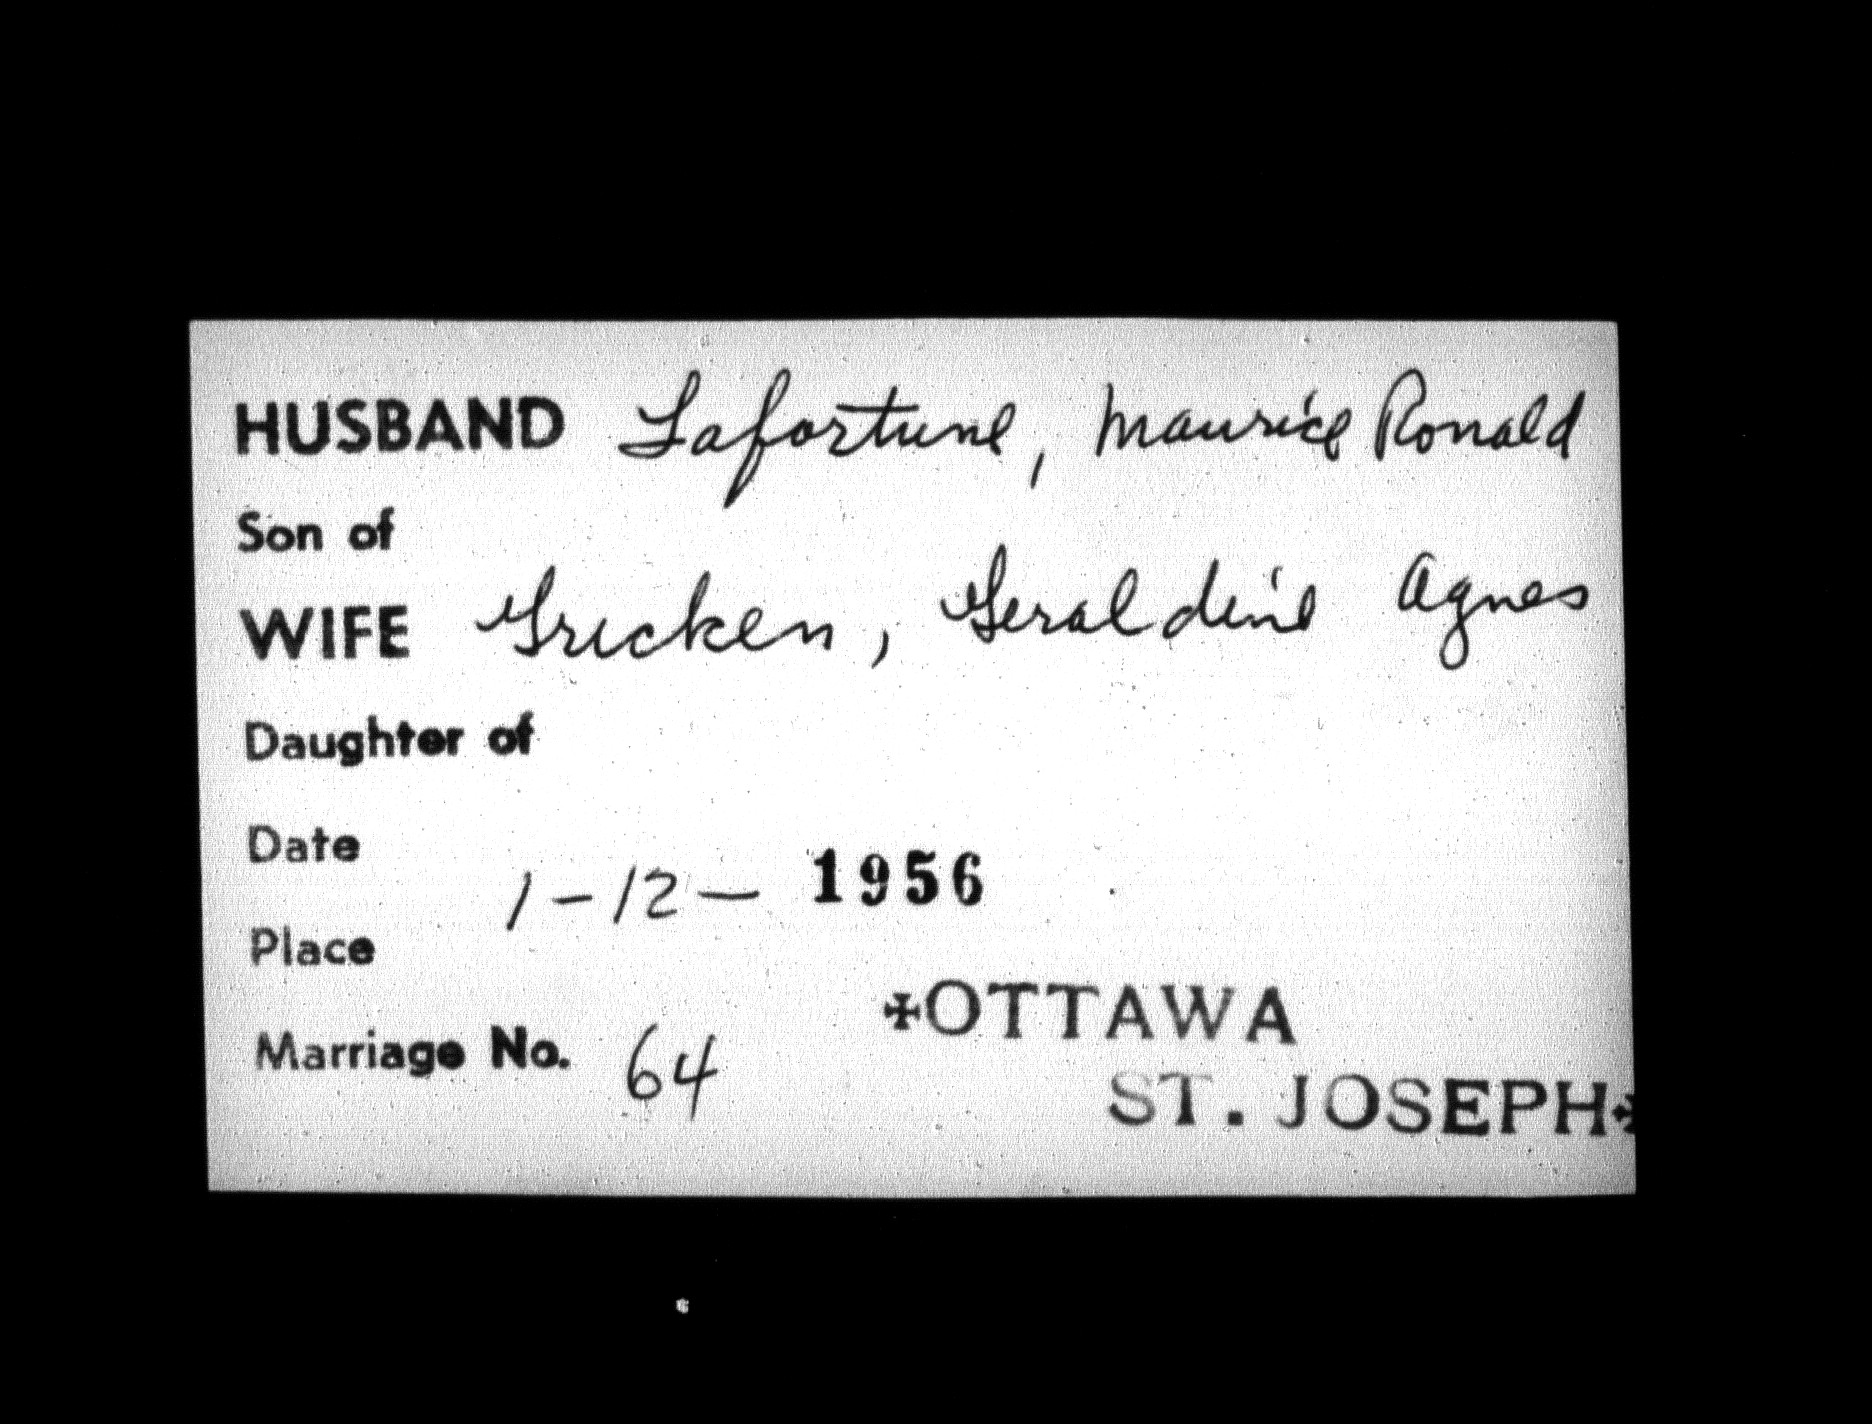 HUSBAND Lafortune, Maurice Ronald
Son of
WIFE Gricken, Geraldine Agnes
Daughter of
Date 1-12- 1956
Place
✠OTTAWA
Marriage No. 64
ST. JOSEPH✠